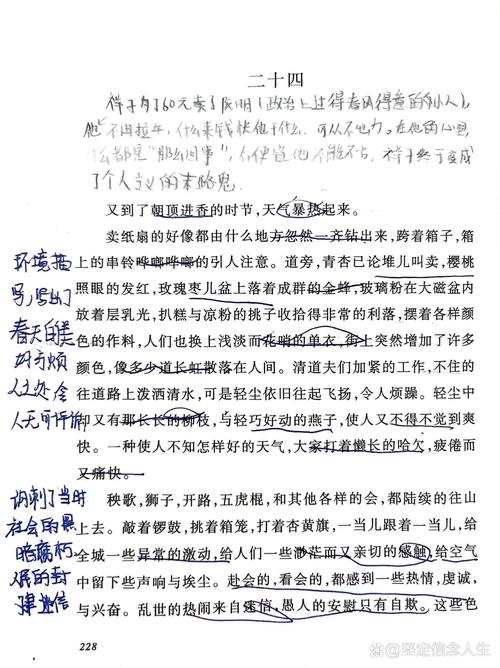 二十四
祥子为了60元卖了阮明(政治上过得春风得意的小人),
他不再拉车,什么来钱快他干什么,可从不出力。在他的心里
什么都是"那么回事",有便宜他不能不占,祥子终于变成
了个人主义的末路鬼
又到了朝顶进香的时节,天气暴热起来。
卖纸扇的好像都由什么地方忽然一齐钻出来,跨着箱子,箱
上的串铃哗啷哗啷的引人注意。道旁,青杏已论堆儿叫卖,樱桃
照眼的发红,玫瑰枣儿盆上落着成群的金蜂,玻璃粉在大磁盆内
放着层乳光,扒糕与凉粉的挑子收拾得非常的利落,摆着各样颜
色的作料,人们也换上浅淡而花哨的单衣,街上突然增加了许多
颜色,像多少道长虹散落在人间。清道夫们加紧的工作,不住的
往道路上泼洒清水,可是轻尘依旧往起飞扬,令人烦躁。轻尘中
却又有那长长的柳枝,与轻巧好动的燕子,使人又不得不觉到爽
快。一种使人不知怎样好的天气,大家打着懒长的哈欠,疲倦而
又痛快。
秧歌,狮子,开路,五虎棍,和其他各样的会,都陆续的往山
上去。敲着锣鼓,挑着箱笼,打着杏黄旗,一当儿跟着一当儿,给
全城一些异常的激动,给人们一些渺茫而又亲切的感触,给空气
中留下些声响与埃尘。赴会的,看会的,都感到一些热情,虔诚,
与兴奋。乱世的热闹来自迷信,愚人的安慰只有自欺。这些色
环境描
写,写出了
春天白美
却方烦
人之处 令
人无可评价
讽刺了当时
社会的黑
暗腐朽
人民的封
建迷信
228
@坚定信念人生